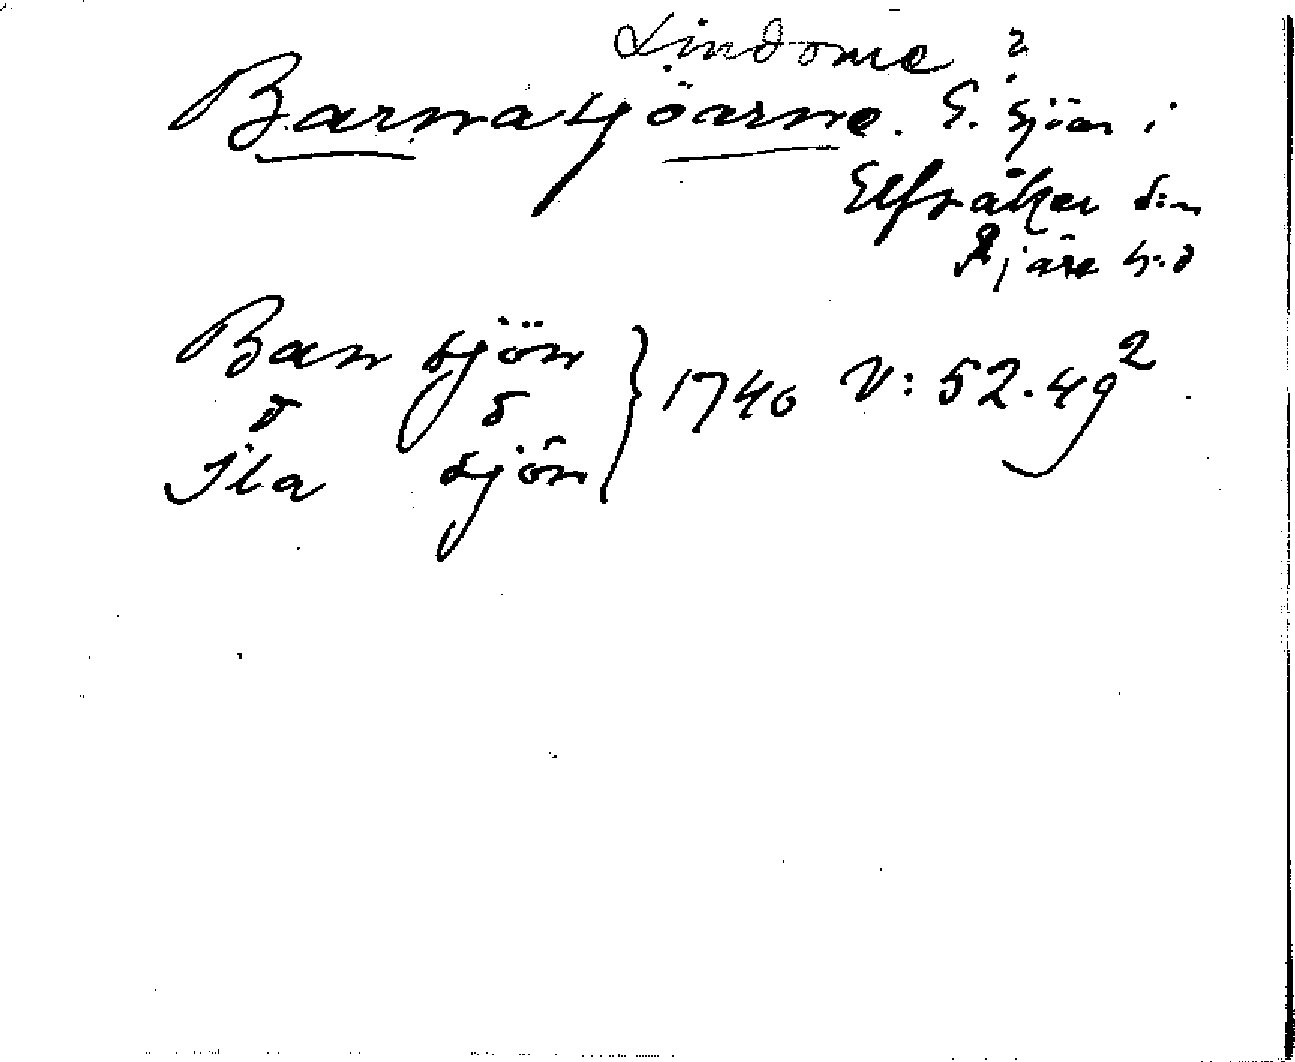 Lindome ?
Barnasjöarne. E. sjöar i
Elfsåker s:n
Fjäre h:d
Barn sjön
d d
Ila sjön } 1740 V: 52.49²